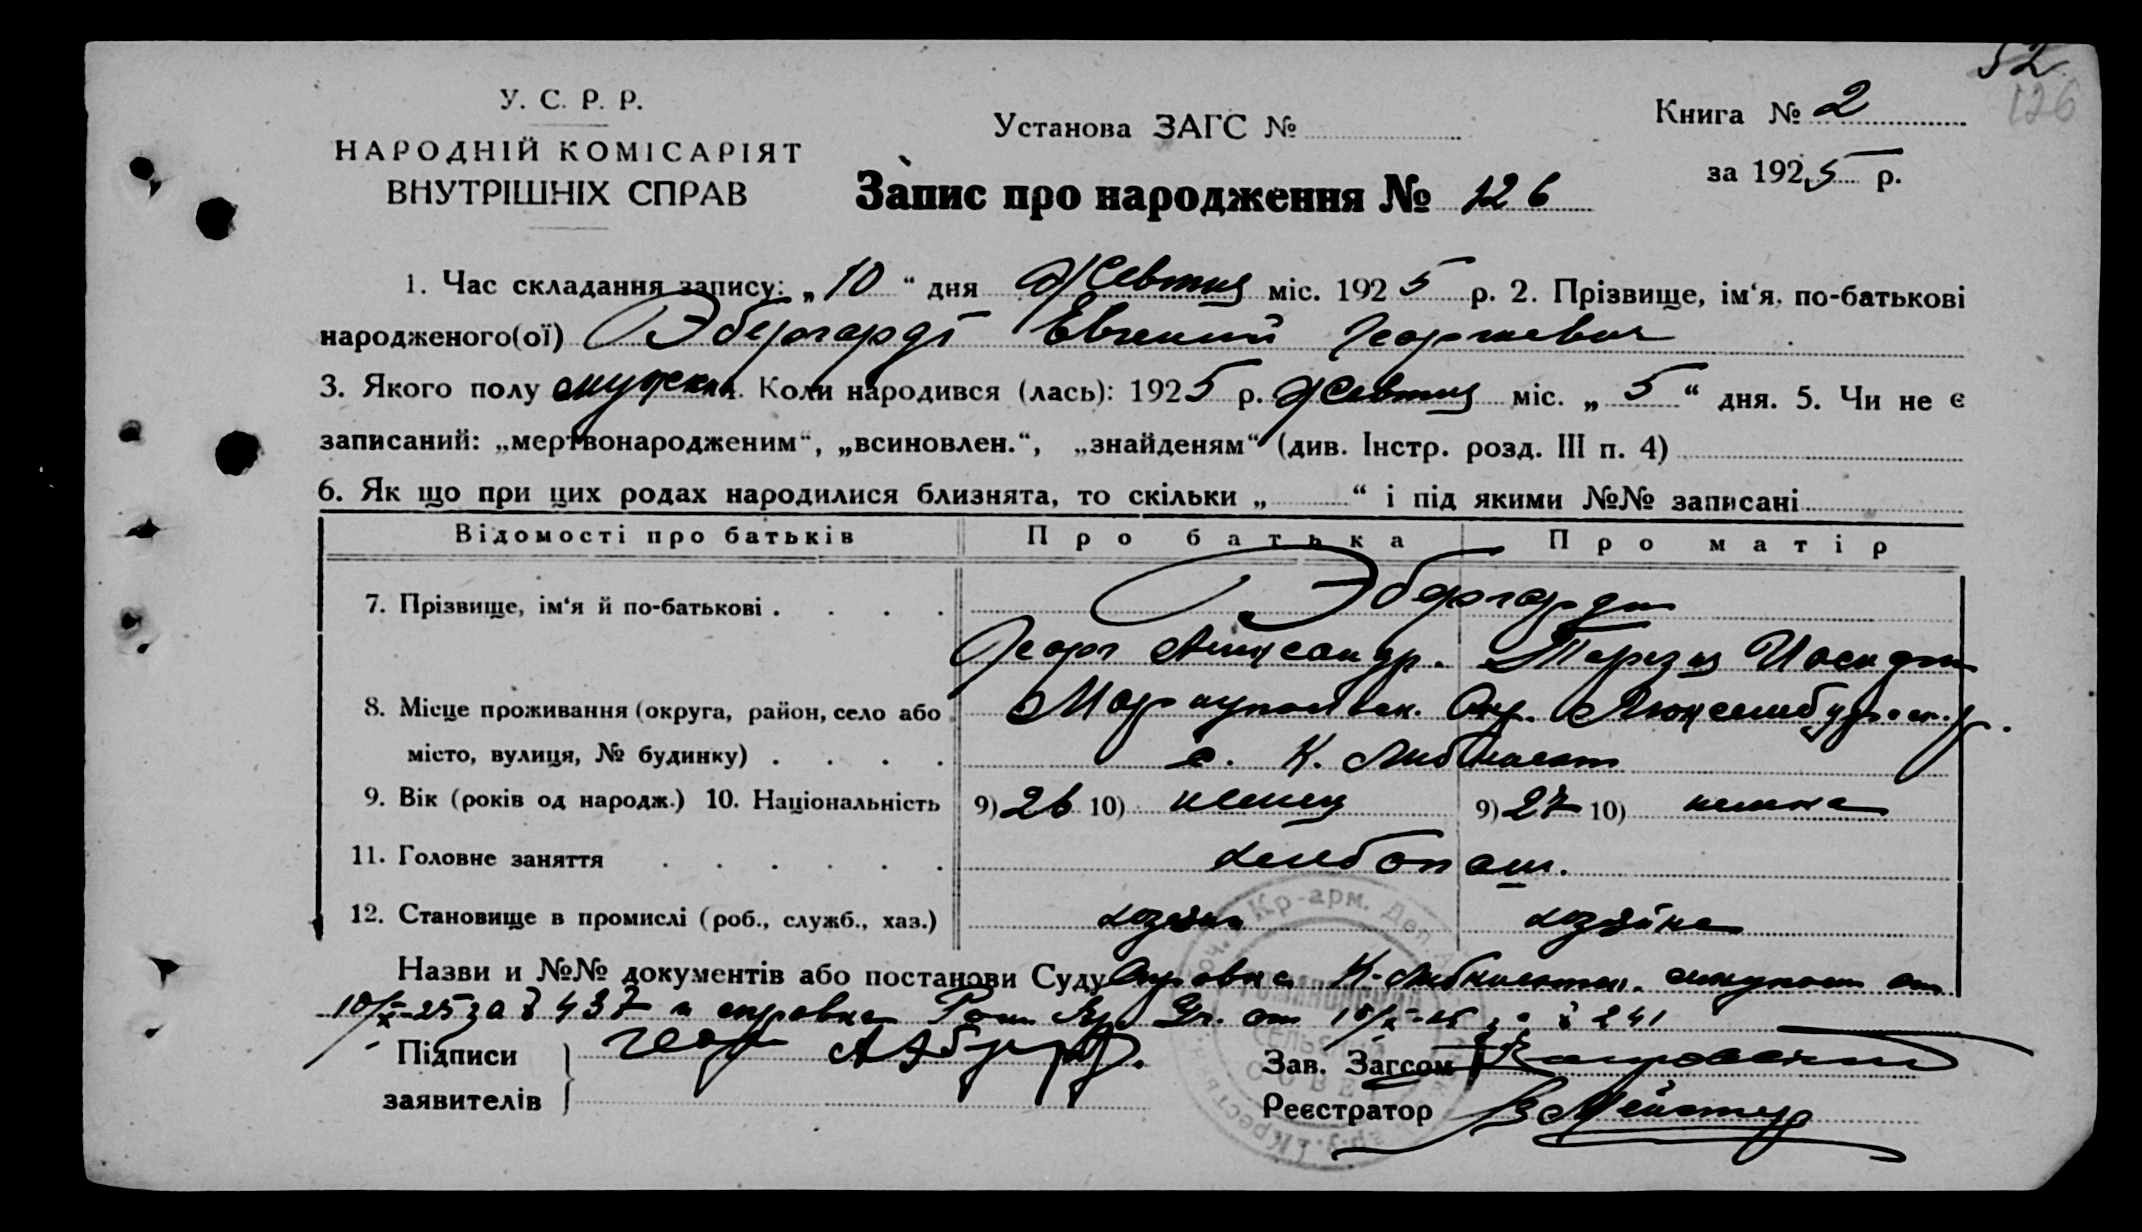 52
126
У. С. Р. Р.
НАРОДНІЙ КОМІСАРІЯТ
ВНУТРІШНІХ СПРАВ
Установа ЗАГС №
Книга № 2
за 1925 р.
Запис про народження № 126
1. Час складання запису: „10“ дня Жовтня міс. 1925 р. 2. Прізвище, ім‘я, по-батькові
народженого(ої) Эбергардт Евгений Георгиевич
3. Якого полу мужск. Коли народився (лась): 1925 р. Жовтня міс. „5“ дня. 5. Чи не є
записаний: „мертвонародженим“, „всиновлен.“, „знайденям“ (див. Інстр. розд. III п. 4)
6. Як що при цих родах народилися близнята, то скільки „ “ і під якими №№ записані
Відомості про батьків Про батька Про матір
7. Прізвище, ім‘я й по-батькові . . . . Эбергардт
Георг Александр. Терезия
8. Місце проживання (округа, район, село або Мариупольск. Окр. Люксембург. р.
місто, вулиця, № будинку) . . . . с. К. Либкнехт
9. Вік (років од народж.) 10. Національність 9) 26 10) немец 9) 27 10) немка
11. Головне заняття . . . . . . хлебопаш.
12. Становище в промислі (роб., служб., хаз.) хозяин хозяйка
Назви и №№ документів або постанови Суду Справка К-Либкнехт. от
10/X-25 за № 437 и справка от за № 241
Підписи
заявителів
Зав. Загсом
Реєстратор